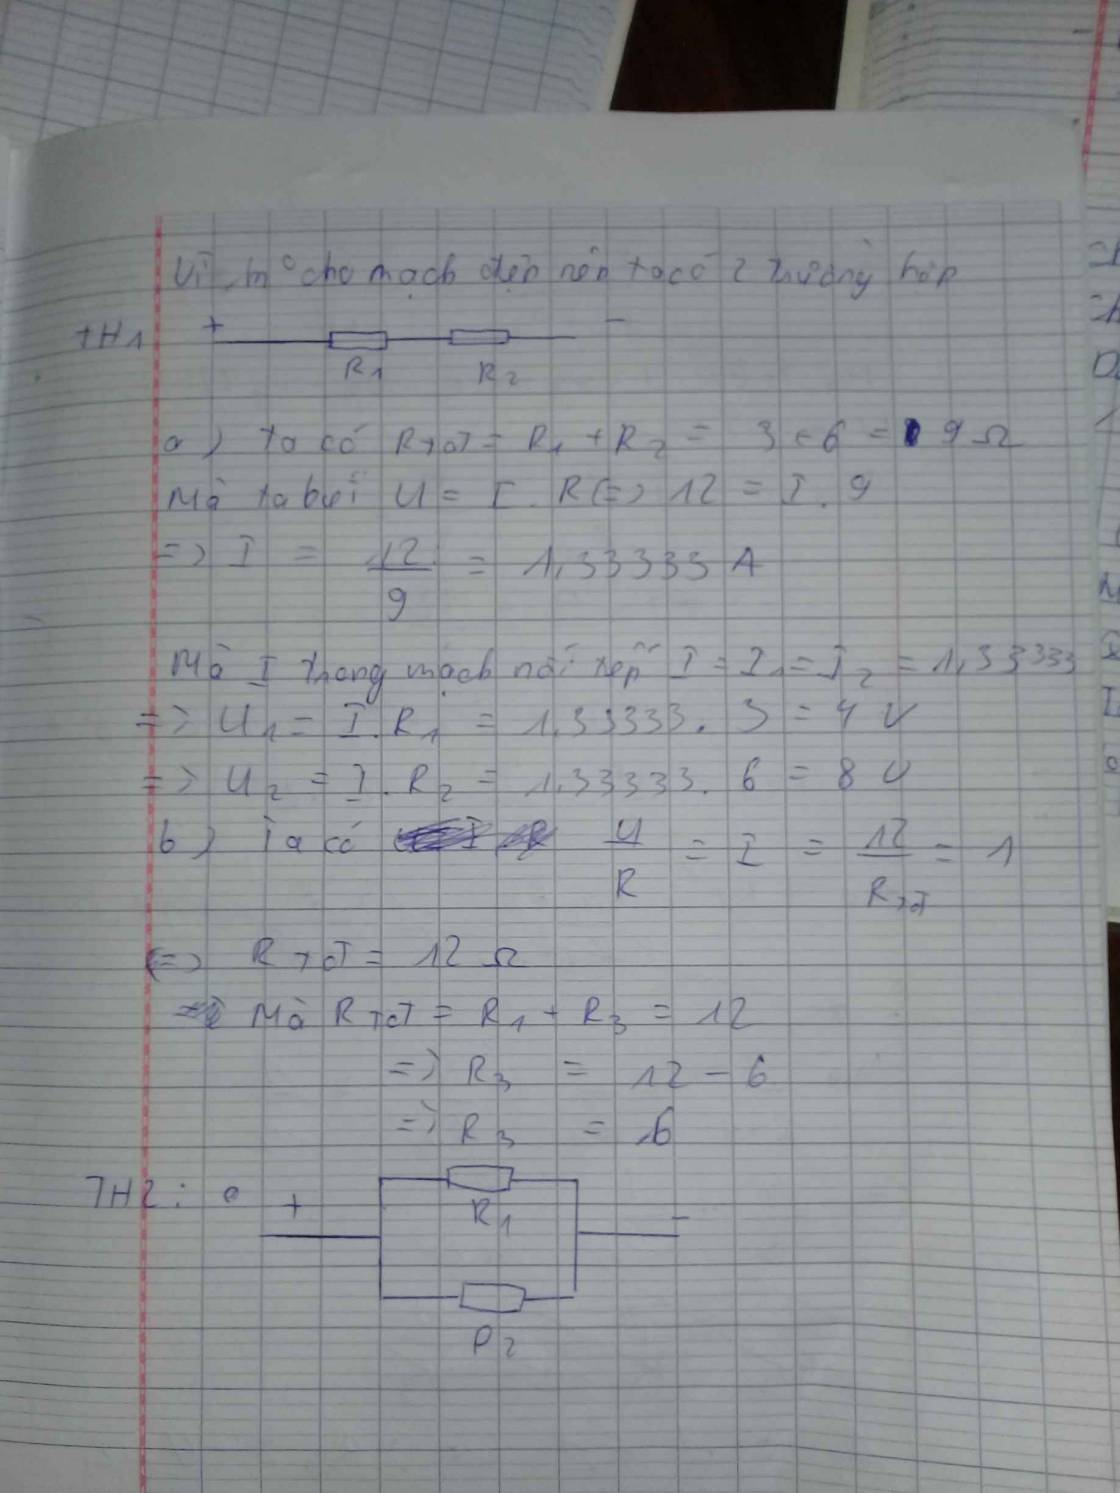 Vì, mo cho mạch điện nên ta có 2 trường hợp
TH1 + -
R1 R2
a) ta có RTĐ = R1 + R2 = 3 + 6 = 9 Ω
Mà ta biết U = I . R (=) 12 = I . 9
=> I = 12/9 = 1,33333 A
Mà I trong mạch nối tiếp I = I1 = I2 = 1,33333
=> U1 = I . R1 = 1,33333 . 3 = 4 V
=> U2 = I . R2 = 1,33333 . 6 = 8 V
b) Ta có U/R = I = 12/RTĐ = 1
(=> RTĐ = 12 Ω
Mà RTĐ = R1 + R3 = 12
=> R3 = 12 - 6
=> R3 = 6
TH2: + -
R1
R2